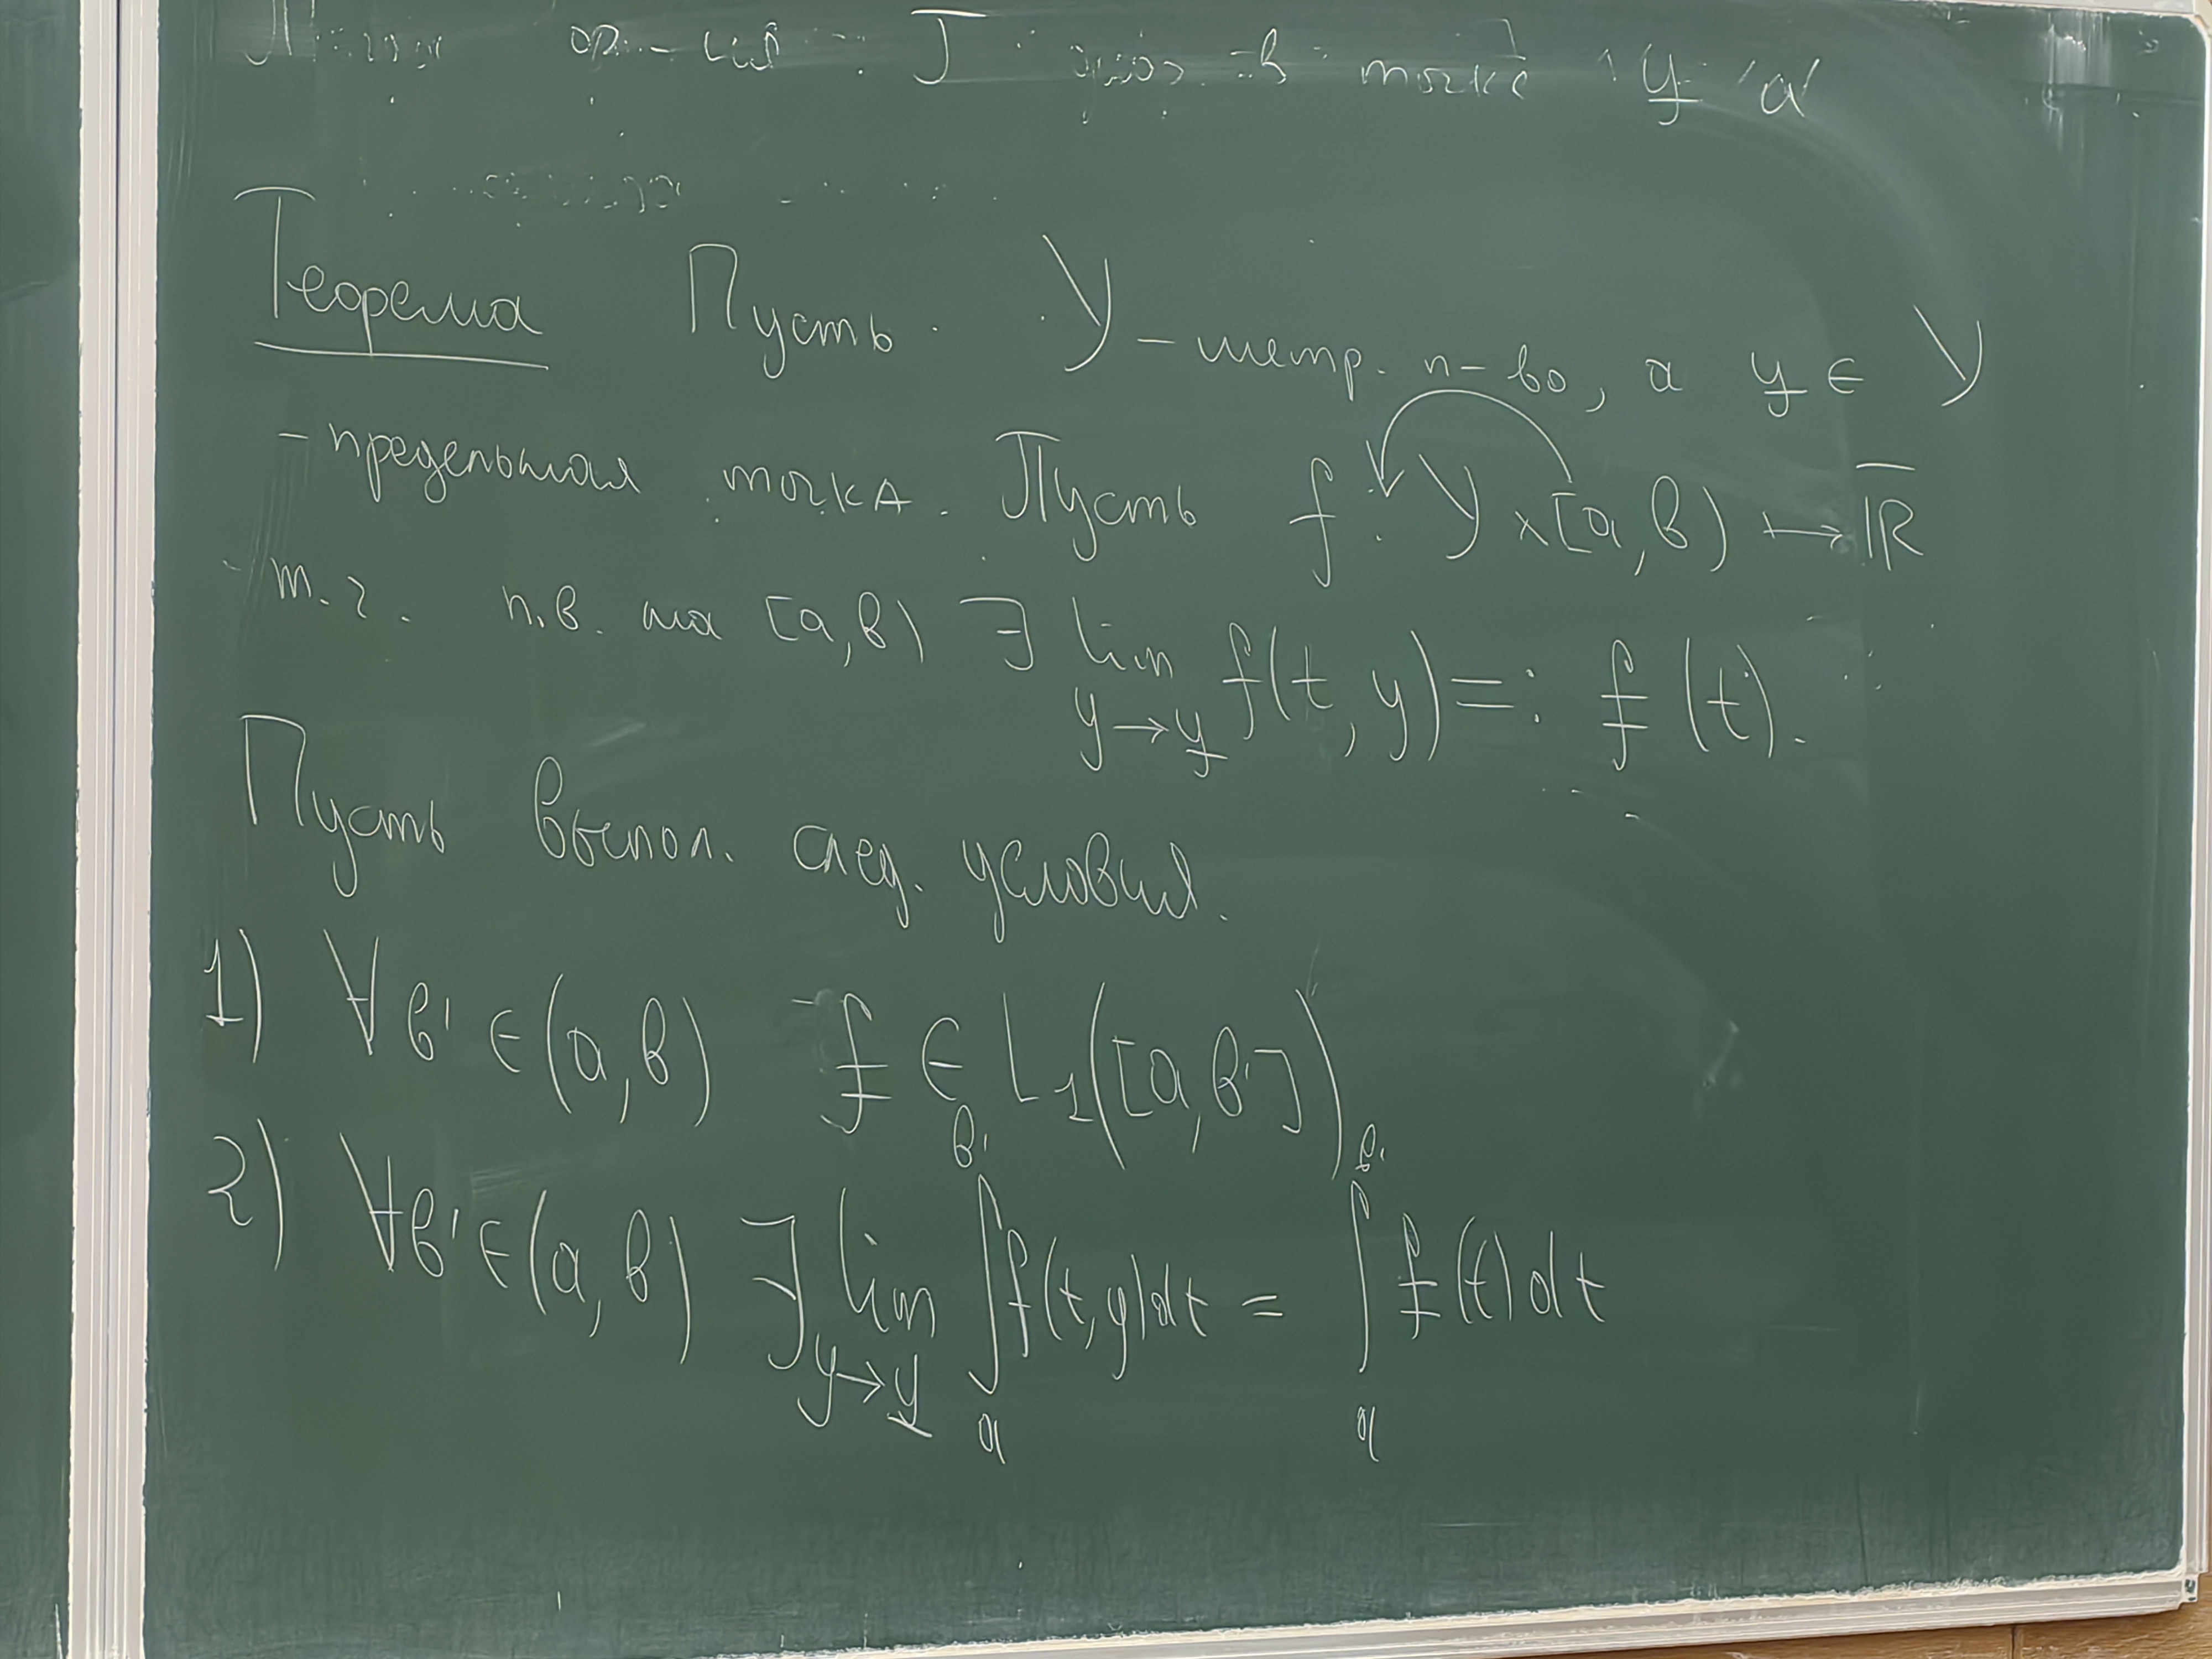 J в точке y̲
Теорема Пусть Y – метр. п-во, а y̲ ∈ Y
– предельная точка. Пусть f: Y × [a, b) ↦ ℝ̅
т.ч. п.в. на [a, b) ∃ lim_{y→y̲} f(t, y) =: f̲(t).
Пусть выпол. след. условия.
1) ∀ b' ∈ (a, b) f̲ ∈ L₁([a, b'])
2) ∀ b' ∈ (a, b) ∃ lim_{y→y̲} ∫_a^{b'} f(t, y)dt = ∫_a^{b'} f̲(t)dt